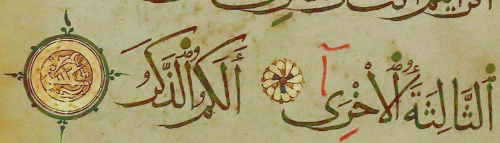 الثَّالِثَةَ ٱلْأُخْرَىٰ أَلَكُمُ ٱلذَّكَرُ